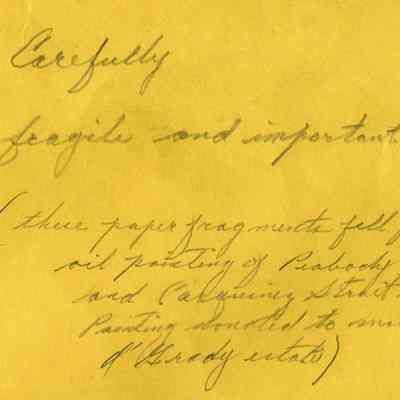 Carefully
fragile and important
(these paper fragments fell f
oil painting of Peabody
and Carquinez Strait.
Painting donated to mu
d'Grady estate)